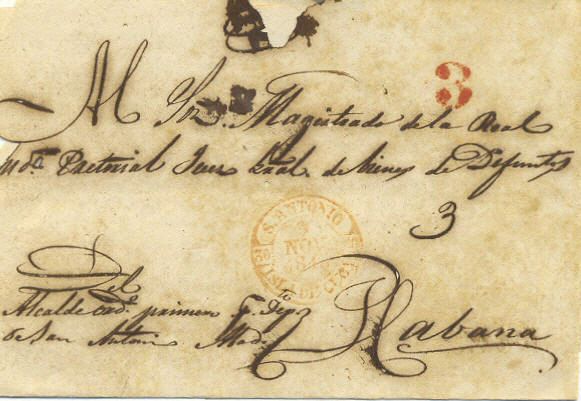 3
Al Sor. Magistrado de la Real
Pretorial Juez Gral. de bienes de Difuntos
3
S. ANTONIO
3
NOV
Del
Alcalde ord. primero
de San Antonio
Habana